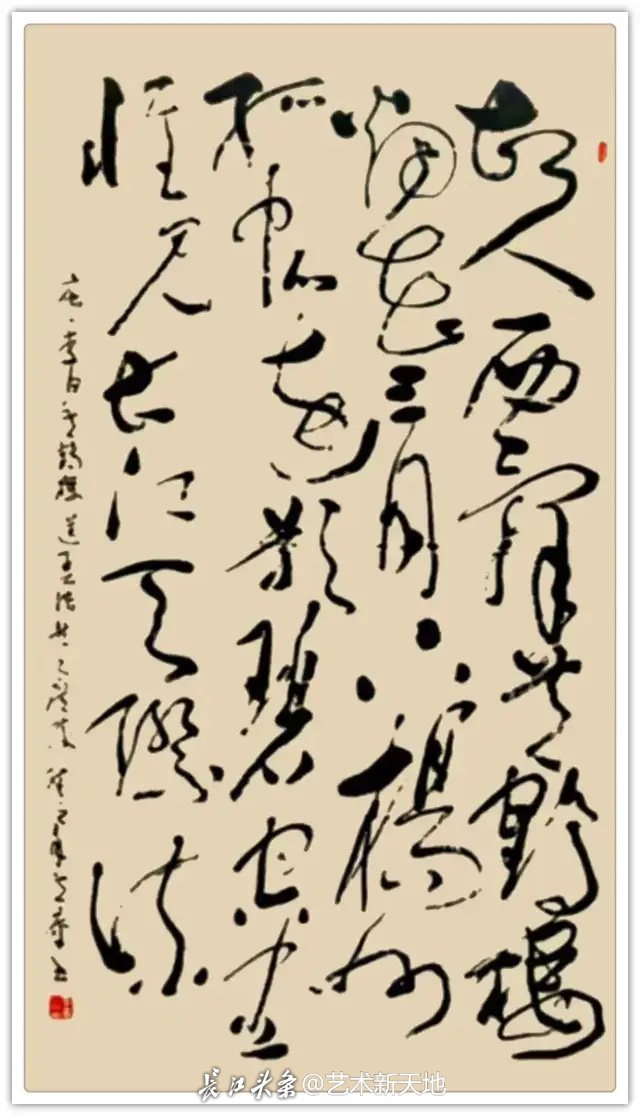 故人西辞黄鹤楼
烟花三月下楊州
孤帆远影碧空尽
惟见长江天際流
唐·李白黄鹤楼送孟浩然之广陵
长江头条@艺术新天地